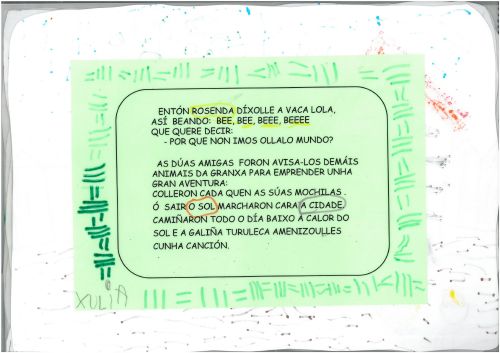 ENTÓN ROSENDA DÍXOLLE A VACA LOLA,
ASÍ BEANDO: BEE, BEE, BEEE, BEEEE
QUE QUERE DECIR:
- POR QUE NON IMOS OLLALO MUNDO?
AS DÚAS AMIGAS FORON AVISA-LOS DEMÁIS
ANIMAIS DA GRANXA PARA EMPRENDER UNHA
GRAN AVENTURA:
COLLERON CADA QUEN AS SÚAS MOCHILAS .
Ó SAIR O SOL MARCHARON CARA A CIDADE.
CAMIÑARON TODO O DÍA BAIXO A CALOR DO
SOL E A GALIÑA TURULECA AMENIZOULLES
CUNHA CANCIÓN.
XULIA